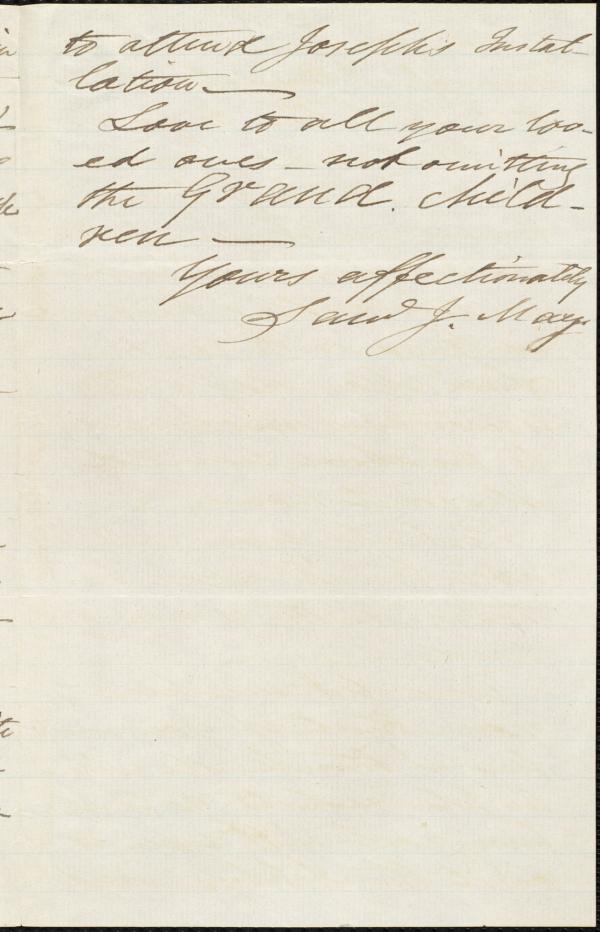 to attend Joseph's Instal-
lation —
Love to all your lov-
ed ones — not omitting
the Grand. child-
ren —
Yours affectionately
Saml J. May.